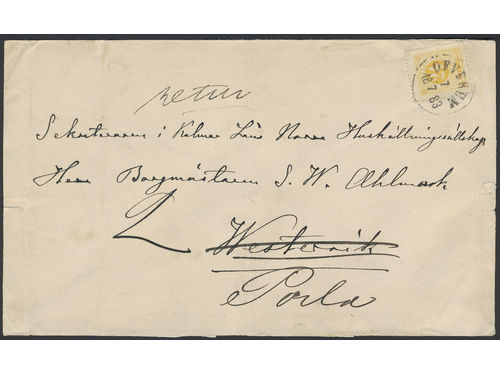 retur
Sekreteraren i Kalmar Läns Norra Hushållningssällskap
Herr Borgmästaren S. W. Ahlmark
2 Westervik
Porla
7
18 7 83